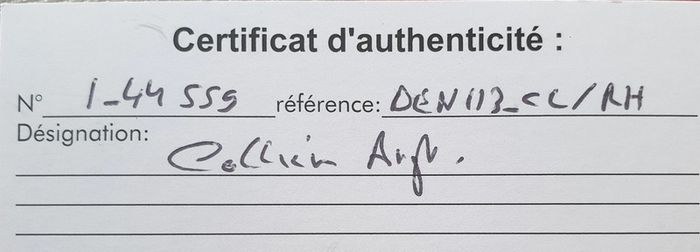 Certificat d'authenticité :
N° 1-44 559 référence: DEN113-CC/RH
Désignation:
Collier Arg.